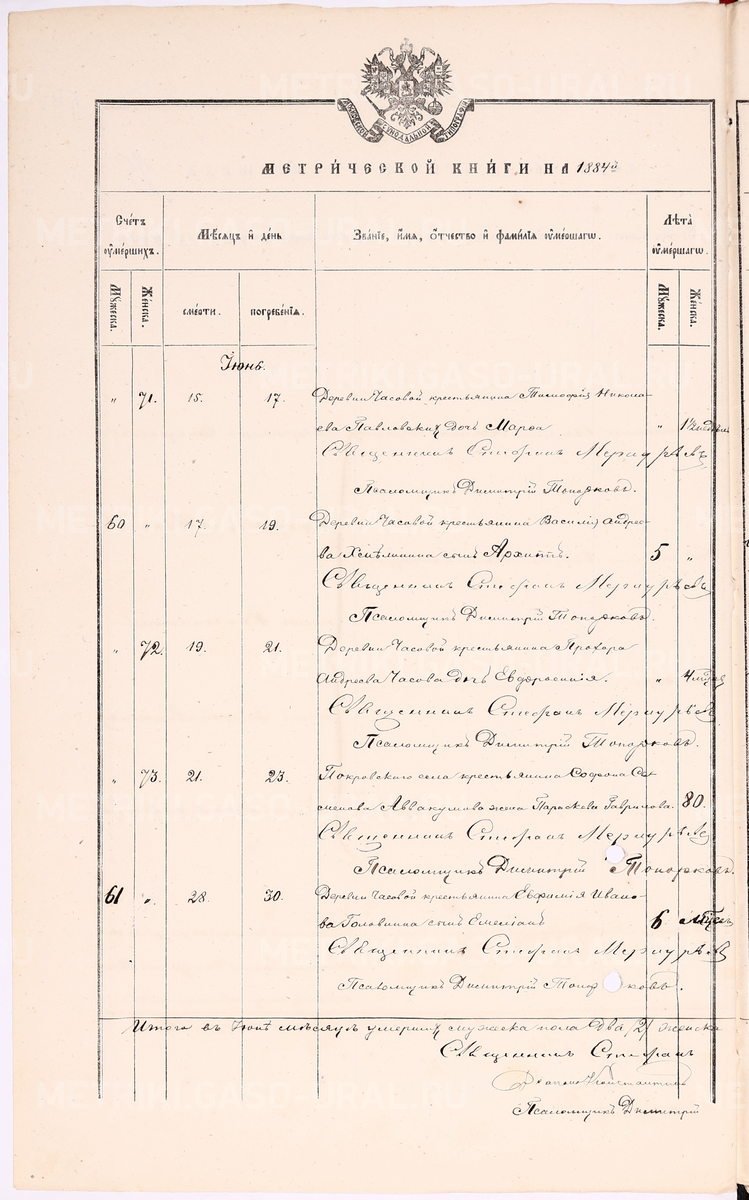 МОСКОВСКОЙ СУНОДАЛЬНОЙ ТИПОГРАФІИ
МЕТРИ́ЧЕСКОЙ КНИ́ГИ НА 1884й
Сче́тъ ᲂу҆ме́ршихъ.
Мѣ́сѧцъ и҆ де́нь
Зва́нїе, и҆́мѧ, ѻ҆́тчество и҆ фами́лїѧ ᲂу҆ме́ршагѡ.
Лѣ́та ᲂу҆ме́ршагѡ.
Мꙋ́жеска.
Же́нска.
сме́рти.
погребе́нїѧ.
Мꙋ́жеска.
Же́нска.
Іюнь.
„ 71. 15. 17. Деревни Часовой крестьянина Тимофея Никола-
ева Павловских дочь Марѳа „ 1½
Священникъ Стефанъ Меркурьевъ
Псаломщикъ Димитрій Топорковъ.
60 „ 17. 19. Деревни Часовой крестьянина Василія Андрее-
ва сынъ Архиппъ. 5 „
Священникъ Стефанъ Меркурьевъ
Псаломщикъ Димитрій Топорковъ.
„ 72. 19. 21. Деревни Часовой крестьянина Прохора
Андреева Часова дочь Евфросинія. „ 4
Священникъ Стефанъ Меркурьевъ
Псаломщикъ Димитрій Топорковъ.
„ 73. 21. 23. Покровскаго села крестьянина Софона Се-
менова Аввакумова жена Параскева Гаврилова. 80.
Священникъ Стефанъ Меркурьевъ
Псаломщикъ Димитрій Топорковъ.
61 „ 28. 30. Деревни Часовой крестьянина Евфимія Ивано-
ва Головнина сынъ Емеліанъ 6
Священникъ Стефанъ Меркурьевъ
Псаломщикъ Димитрій Топорковъ.
Итого въ Іюнѣ мѣсяцѣ умершихъ мужеска пола два /2/ женска
Священникъ Стефанъ
Константинъ
Псаломщикъ Димитрій
METRIKI.GASO-URAL.RU